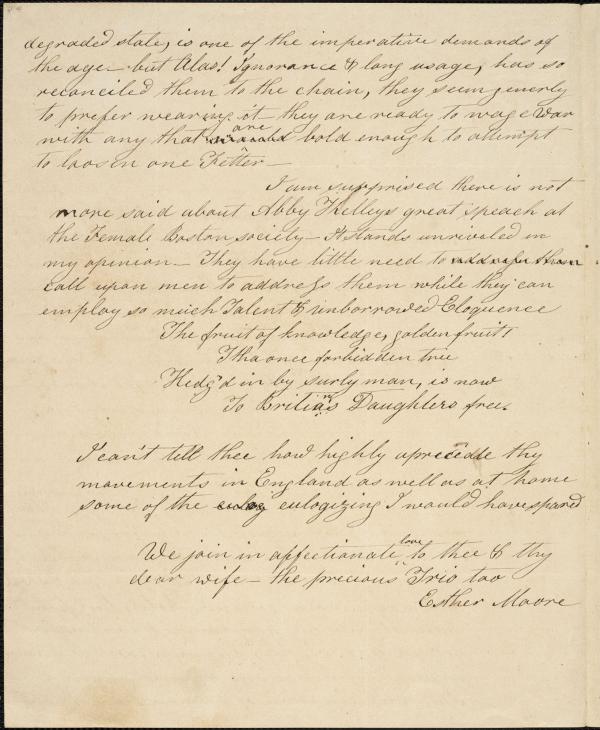 degraded state, is one of the imperative demands of
the age— but Alas! Ignorance & long usage, has so
reconciled them to the chain, they seem generly
to prefer wearing it— they are ready to wage war
with any that are bold enough to attempt
to loosen one Fetter—
I am surprised there is not
more said about Abby Kelleys great speach at
the Female Boston society— It stands unrivaled in
my opinion— They have little need to
call upon men to address them while they can
employ so much Talent & unborrowed Eloquence
The fruit of knowledge, golden fruit!
Tha once forbidden tree
Hedg'd in by surly man, is now
To Britians Daughters free.
I can't tell thee how highly apreceate thy
movements in England as well as at home
some of the eulog eulogizing I would have spared
We join in affectionate love to thee & thy
dear wife— the precious Trio too
Esther Moore